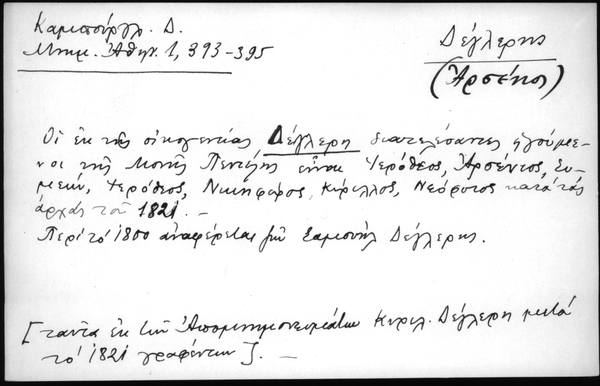 Καμπούρογλ. Δ.
Μνημ. Ἀθην. 1, 393-395
Δέγλερης
(Ἀρσένιος)
Οἱ ἐκ τῆς οἰκογενείας Δέγλερη διατελέσαντες ἡγούμε-
νοι τῆς Μονῆς Πεντέλης εἶναι Ἱερόθεος, Ἀρσένιος, Συ-
μεών, Ἱερόθεος, Νικηφόρος, Κύριλλος, Νεόφυτος κατὰ τὰς
ἀρχὰς τοῦ 1821. –
Περὶ τὸ 1800 ἀναφέρεται Σαμουὴλ Δέγλερης.
[ταῦτα ἐκ τῶν Ἀπομνημονευμάτων Κυρίλ. Δέγλερη μετὰ
τὸ 1821 γραφέντων]. –